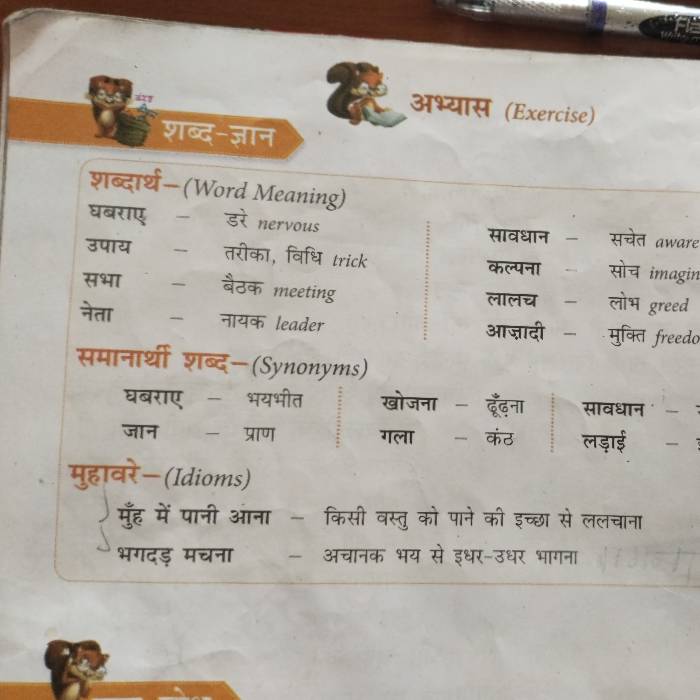 अभ्यास (Exercise)
शब्द-ज्ञान
शब्दार्थ–(Word Meaning)
घबराए – डरे nervous
उपाय – तरीका, विधि trick
सभा – बैठक meeting
नेता – नायक leader
सावधान – सचेत aware
कल्पना – सोच imagin
लालच – लोभ greed
आज़ादी – मुक्ति freedo
समानार्थी शब्द–(Synonyms)
घबराए – भयभीत खोजना – ढूँढ़ना सावधान –
जान – प्राण गला – कंठ लड़ाई –
मुहावरे–(Idioms)
मुँह में पानी आना – किसी वस्तु को पाने की इच्छा से ललचाना
भगदड़ मचना – अचानक भय से इधर-उधर भागना